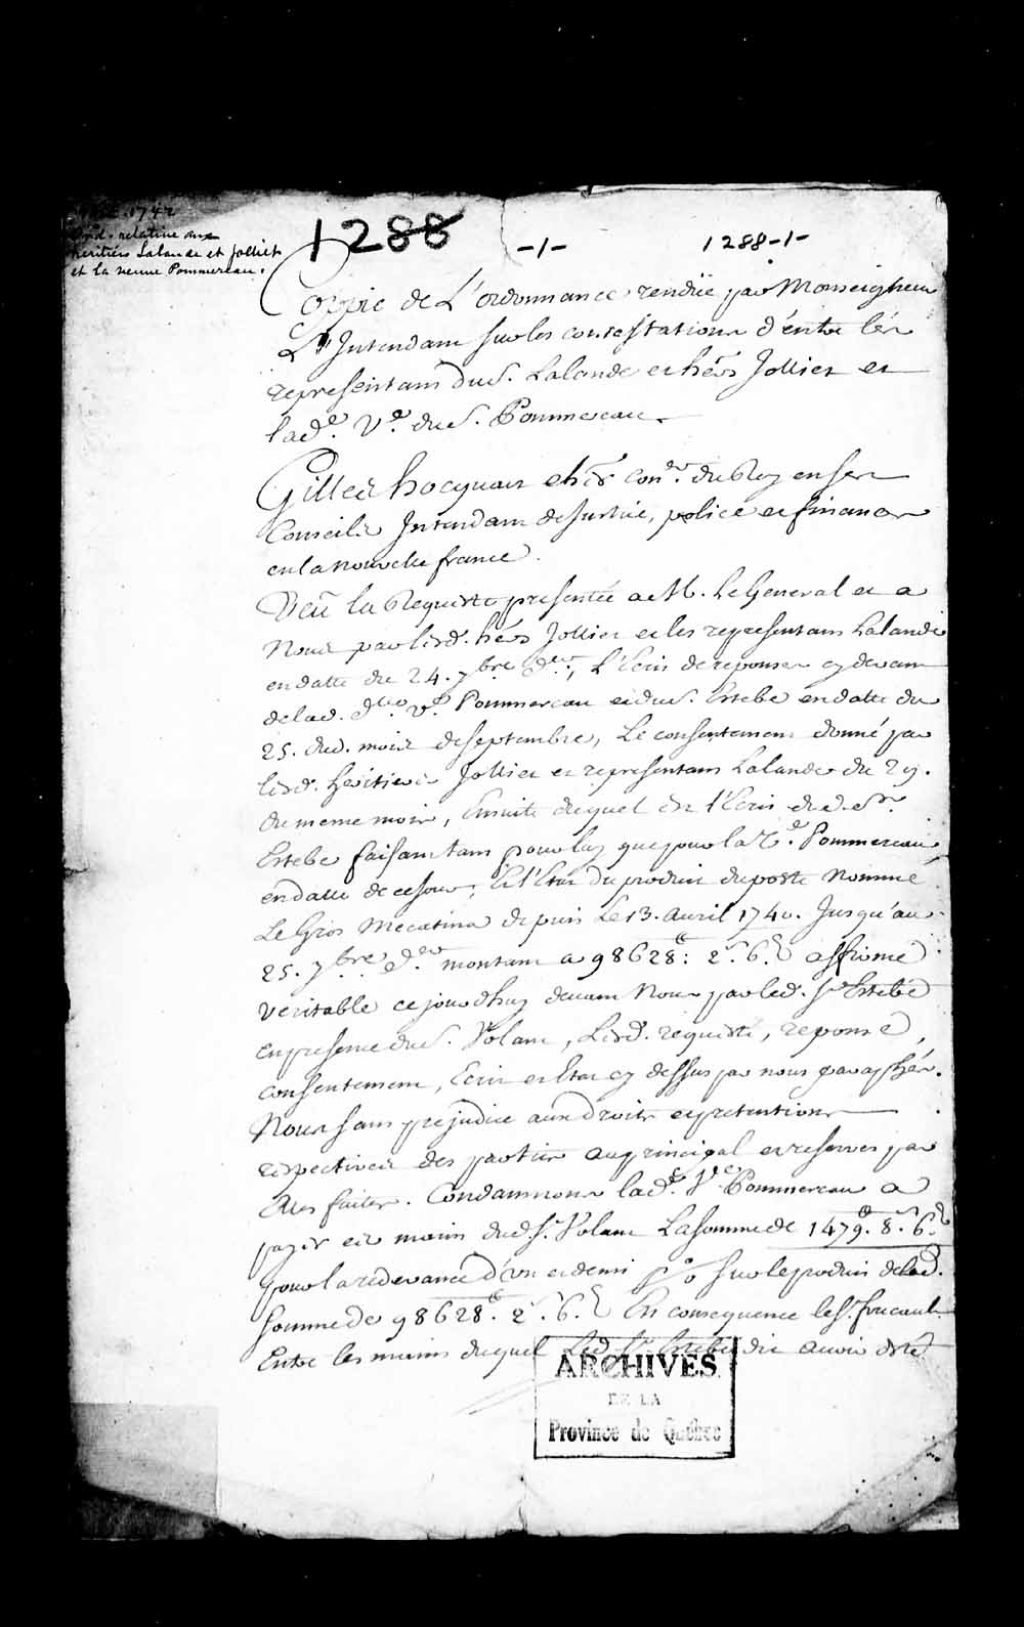 1742
Ord. relative aux
héritiers Lalande et Jolliet
et la veuve Pommereau.
1288
-1-
1288-1-
Coppie de L'ordonnance rendüe par Monseigneur
L'Intendant sur les contestations d'entre les
representans du S. Lalande et hérs Jolliet et
lade. Ve. du S. Pommereau.
Gilles hocquart chr conr. du Roy en ses
Conseils Intendant de Justice, police et finances
en la nouvelle france.
Veu la Requeste presentée a M. Le General et a
Nous par lesd. hérs Jolliet et les representans Lalande
en datte du 24. 7bre der, L'Ecrit de reponses cy devant
de lad. de ve Pommereau et du S. Estebe en datte du
25. dud. mois de septembre, Le consentement donné par
lesd. heritiers Jolliet et representans Lalande du 29.
du meme mois, Ensuite duquel est l'Ecrit dud. Sr.
Estebe faisant tant pour luy que pour la Ve. Pommereau
en datte de ce jour; Et l'Etat du produit du poste Nommé
Le Gros Mecatina depuis le 13. avril 1740. Jusqu'au
25. 7bre der montant a 98628: 2s. 6d affirmé
veritable ce jourdhuy devant Nous par led. Sr Estebe
en presence du S. Volant, Lesd. requeste, reponse,
consentement, Ecrit et Etat cy dessus par nous paraphés.
Nous sans prejudice aux droits et pretentions
respectives des parties au principal et reserves par
elles faites. Condamnons lade. Ve Pommereau a
payer es mains dud. Sr. Volant La somme de 1479. 8s. 6d
pour la redevance d'un et demi p% sur le produit de lad.
somme de 98628. 2s. 6d En consequence le Sr. foucault
Entre les mains duquel Led. Sr. Estebe dit avoir esté
ARCHIVES
DE LA
Province de Québec